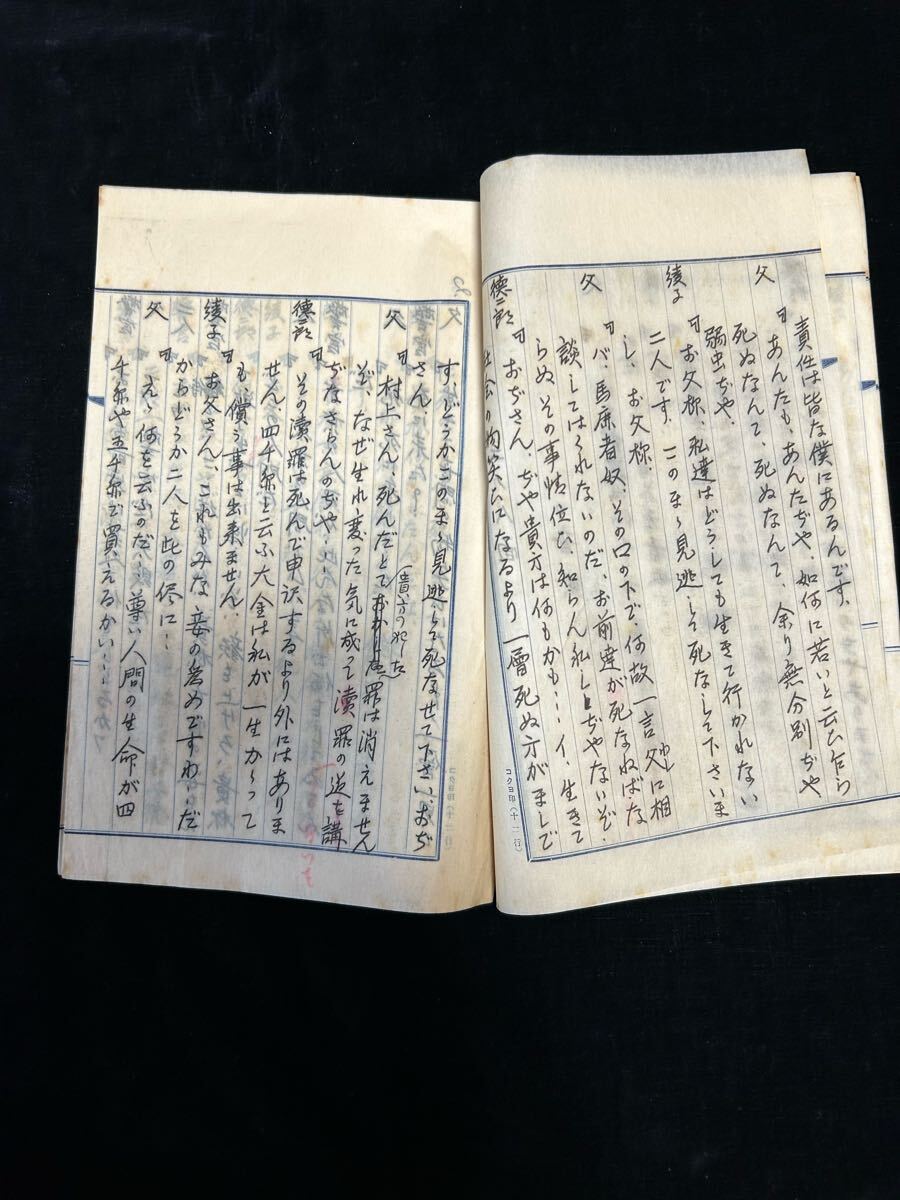 責任は皆な僕にあるんです。
父 「あんたも、あんたぢや、如何に若いと云ひ乍ら
死ぬなんて、死ぬなんて、余り無分別ぢや、
弱虫ぢや。
綾子 「お父様、私達はどうしても生きて行かれない
二人です。このまゝ見逃して死なして下さいま
し、お父様。
父 「バ、馬鹿者奴、その口の下で、何故一言父に相
談してはくれないのだ、お前達が死なねばな
らぬ、その事情位ひ、知らん私しぢやないぞ。
徳二郎 「おぢさん、ぢや貴方は何もかも… イ、生きて
社会の物笑ひになるより一層死ぬ方がましで
コクヨ印(十二行)
す、どうかこのまゝ見逃して死なせて下さい、おぢ
さん。
父 「村上さん、死んだとて(貴方の犯した)罪は消えません
ぞ、なぜ生れ変った気に成って瀆罪の道を講
ぢなさらんのぢや
徳二郎 「その瀆罪は死んで申訳するより外にはありま
せん、四千弥と云ふ大金は私が一生かゝって
も償う事は出来ません‥
綾子 「お父さん、これもみな妾の為めですわ…だ
からどうか二人を此の侭に…
父 「えゝ何を云ふのだ‥尊い人間の生命が四
千弥や五千弥で買えるかい…
コクヨ印(十二行)